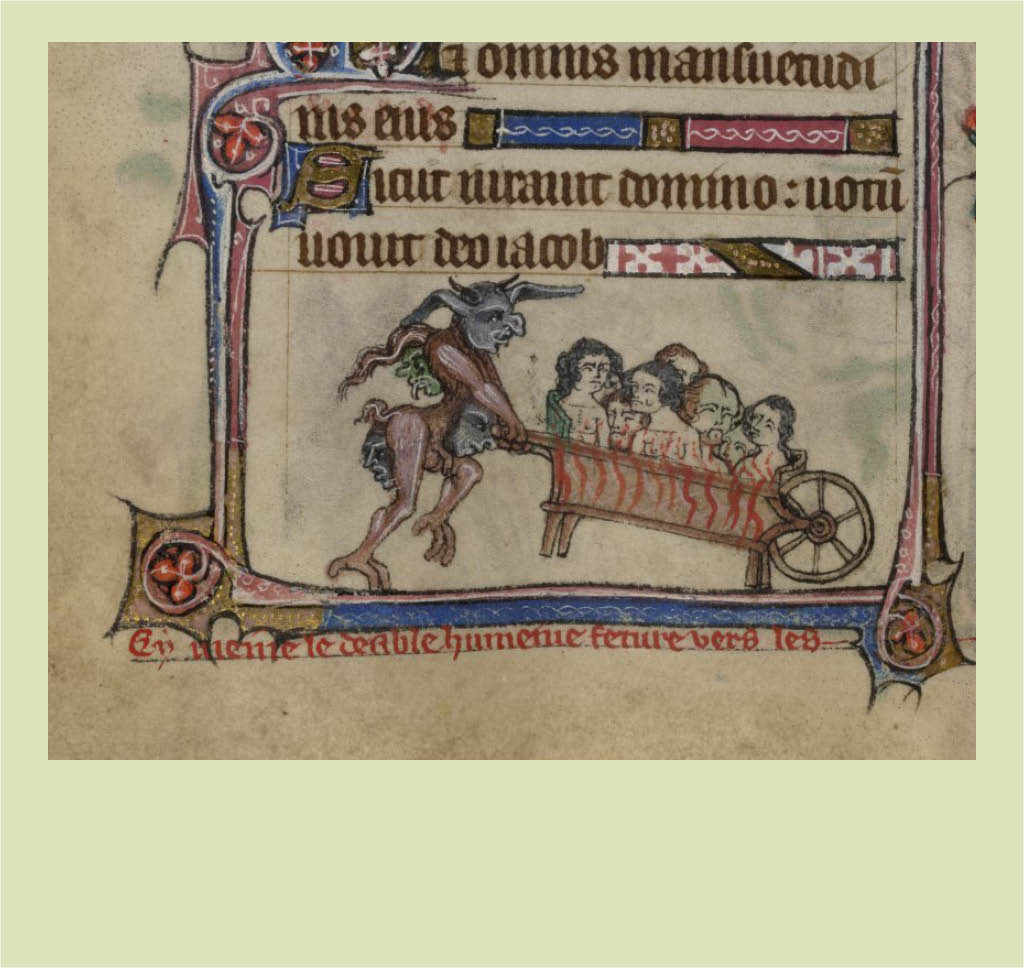 Et omnis mansuetudi
nis eius
Sicut iurauit domino : uotū
uouit deo iacob
Cy meine le deable humeine feture vers les